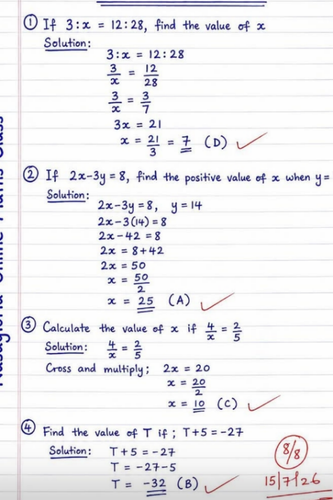 ① If 3:x = 12:28, find the value of x
Solution:
3:x = 12:28
3/x = 12/28
3/x = 3/7
3x = 21
x = 21/3 = 7 (D)
② If 2x-3y=8, find the positive value of x when y=
Solution:
2x-3y=8, y=14
2x-3(14)=8
2x-42 =8
2x = 8+42
2x = 50
x = 50/2
x = 25 (A)
③ Calculate the value of x if 4/x = 2/5
Solution: 4/x = 2/5
Cross and multiply; 2x = 20
x = 20/2
x = 10 (C)
④ Find the value of T if; T+5=-27
Solution: T+5=-27
T = -27-5
T = -32 (B)
8/8
15/7/26
Online Maths Class